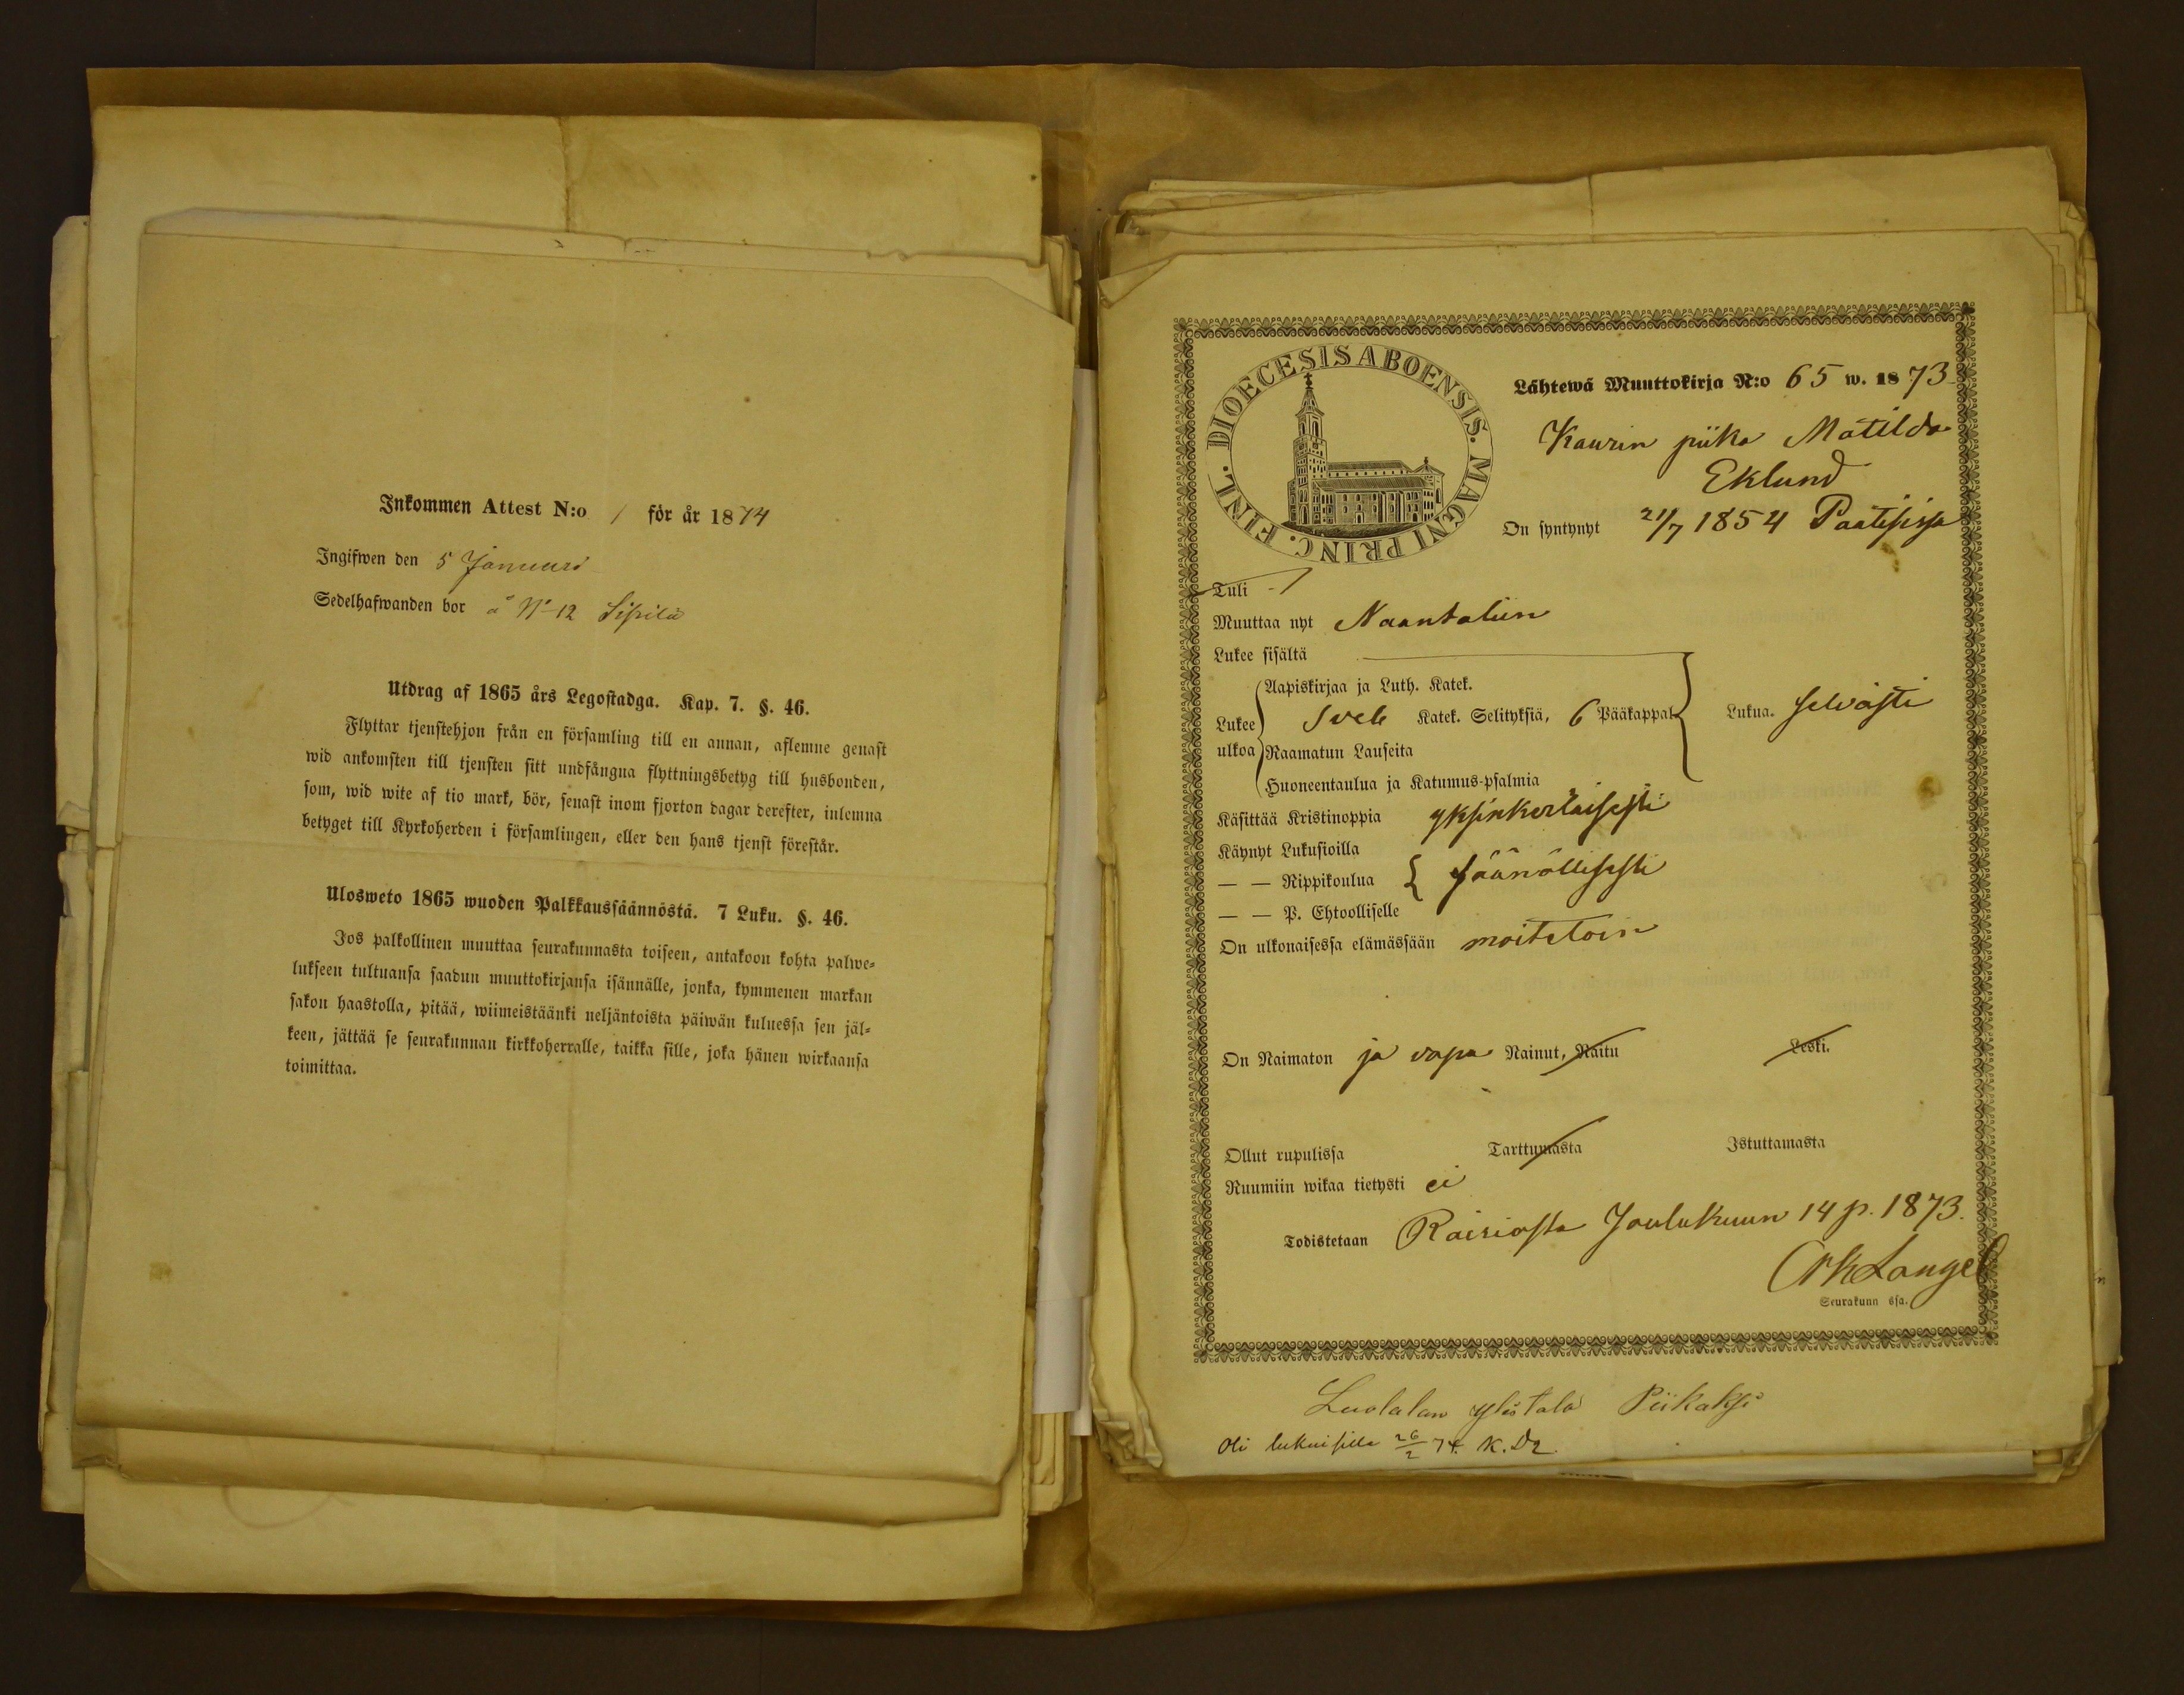 Inkommen Attest N:o 1 för år 1874
Ingifwen den 5 Januari
Sedelhafwanden bor å No 12 Sipilä
Utdrag af 1865 års Legostadga. Kap. 7. §. 46.
Flyttar tjenstehjon från en församling till en annan, aflemne genast
wid ankomsten till tjensten sitt undfångna flyttningsbetyg till husbonden,
som, wid wite af tio mark, bör, senast inom fjorton dagar derefter, inlemna
betyget till Kyrkoherden i församlingen, eller den hans tjenst förestår.
Ulosweto 1865 wuoden Palkkaussäännöstä. 7 Luku. §. 46.
Jos palkollinen muuttaa seurakunnasta toiseen, antakoon kohta palwe-
lukseen tultuansa saadun muuttokirjansa isännälle, jonka, kymmenen markan
sakon haastolla, pitää, wiimeistäänki neljäntoista päiwän kuluessa sen jäl-
keen, jättää se seurakunnan kirkkoherralle, taikka sille, joka hänen wirkaansa
toimittaa.
DIOECESIS ABOENSIS. MAGNI PRINC. FINL.
Lähtewä Muuttokirja N:o 65 w. 1873
Kaurin piika Matilda
Eklund
On syntynyt 21/7 1854 Paatisissa
Tuli
Muuttaa nyt Naantaliin
Lukee sisältä
Lukee ulkoa
Aapiskirjaa ja Luth. Katek.
Sveb Katek. Selityksiä, 6 Pääkappal
Raamatun Lauseita
Huoneentaulua ja Katumus-psalmia
Lukua. selvästi
Käsittää Kristinoppia yksinkertaisesti
Käynyt Lukusioilla
— — Rippikoulua säännöllisesti
— — P. Ehtoolliselle
On ulkonaisessa elämässään moitetoin
On Naimaton ja vapa Nainut, Naitu Leski.
Ollut rupulissa Tarttumasta Istuttamasta
Ruumiin wikaa tietysti ei
Todistetaan Raisiosta Joulukuun 14 p. 1873.
Langel
Seurakunn ssa.
Luolalan ylistalo Piikaksi
Oli lukuisilla 26/2 74